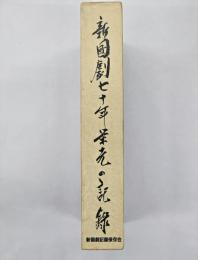 新國劇七十年栄光の記録
新国劇記録保存会